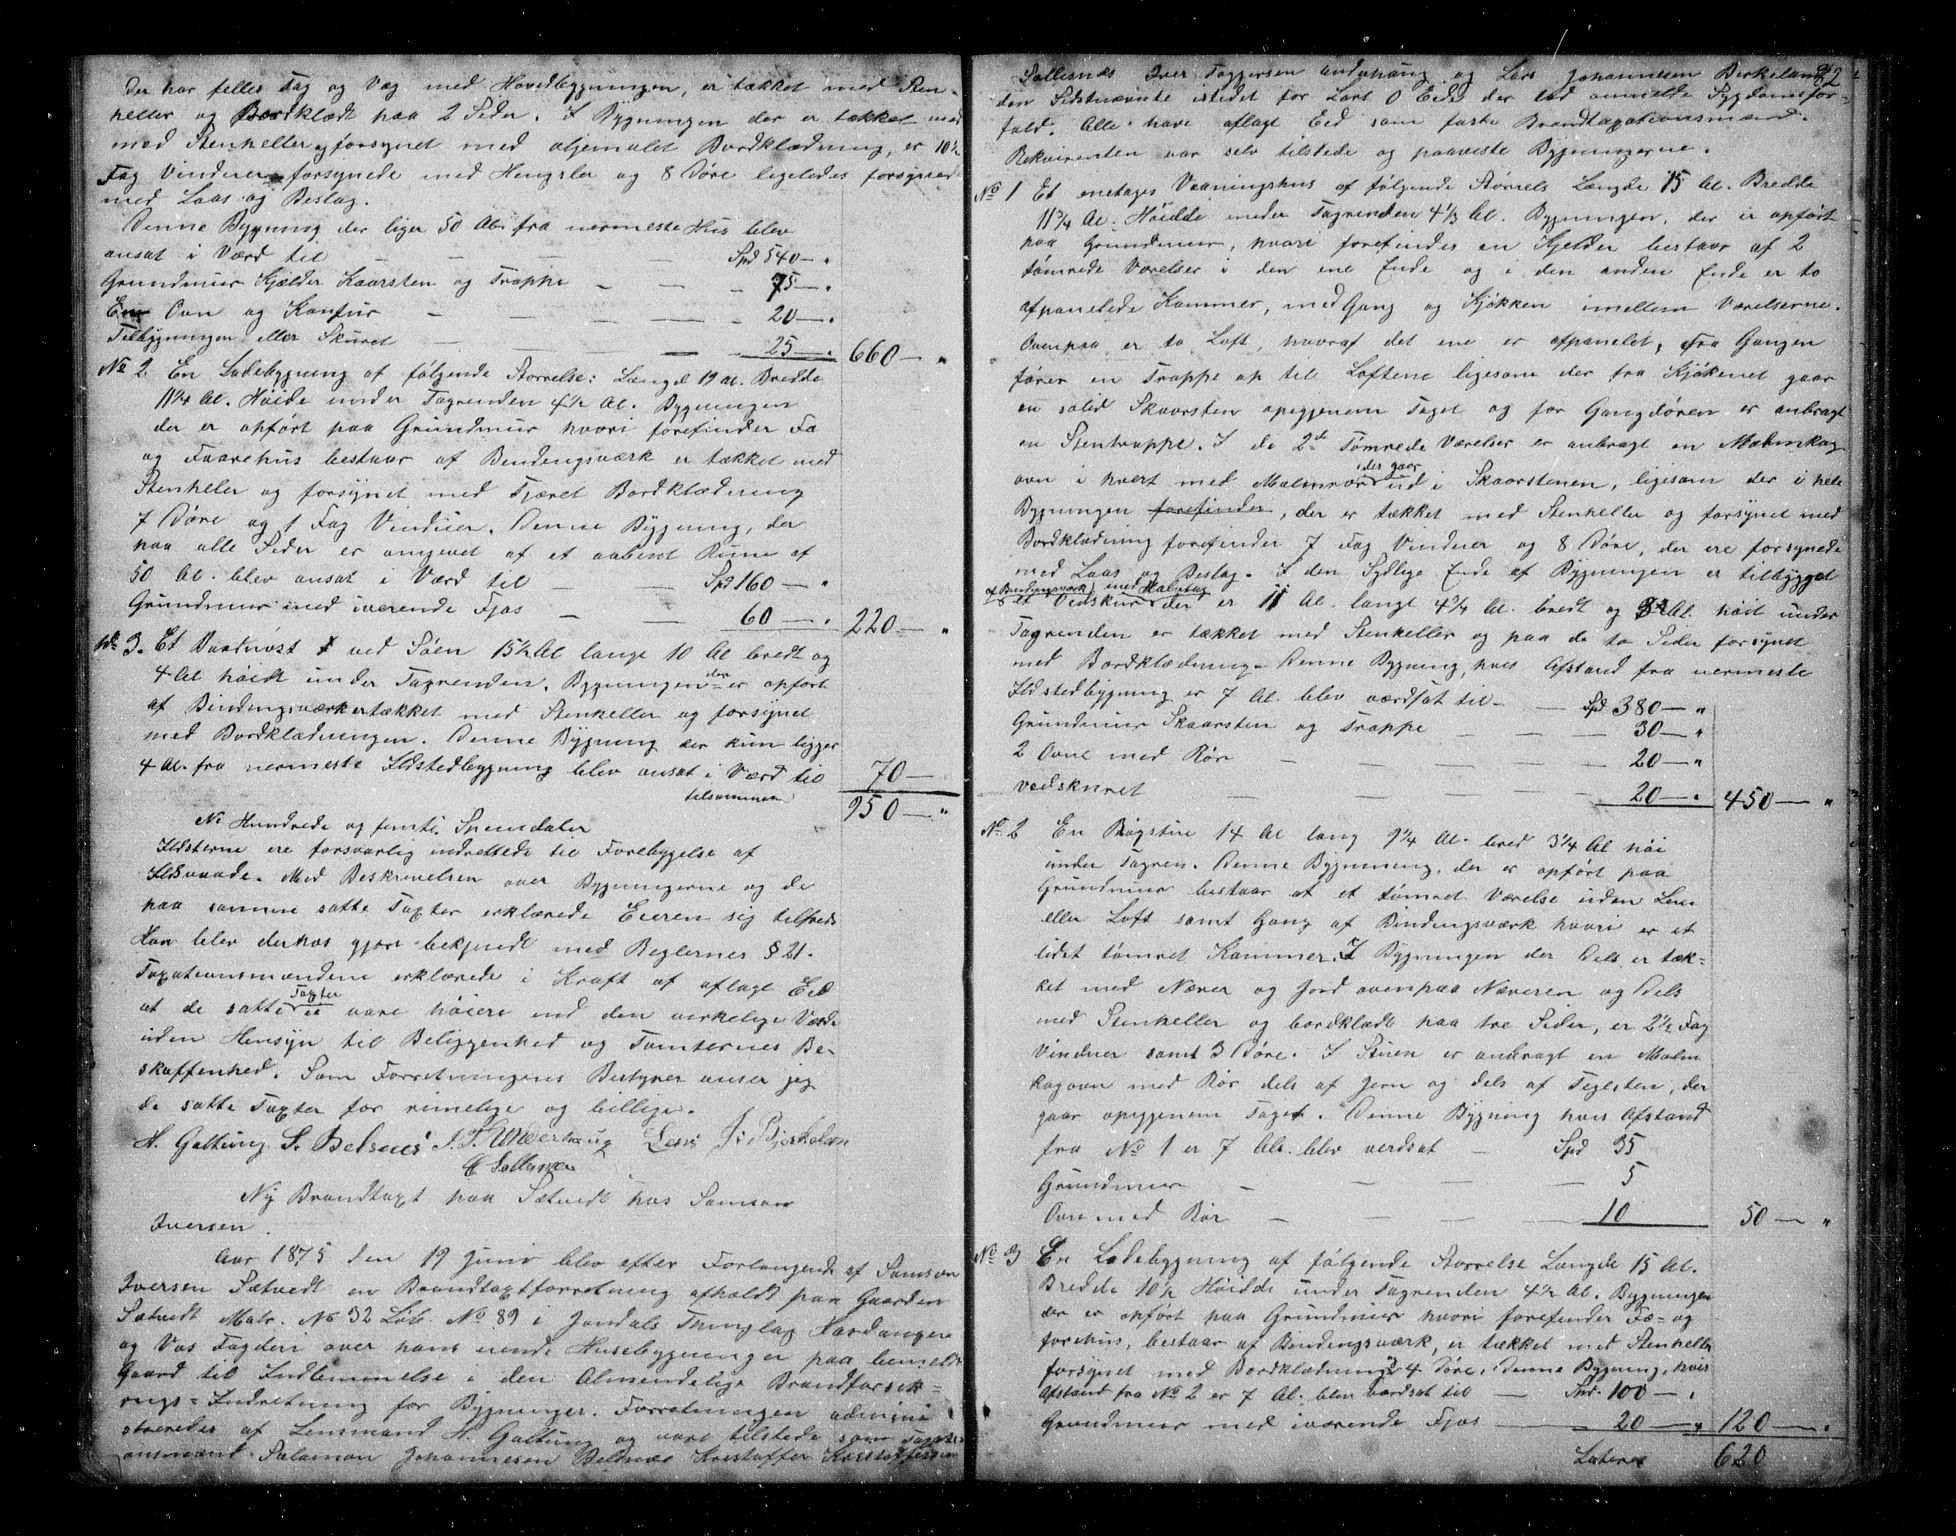 der har felles Tag og Væg med Hovedbygningen, er tækket med Sten-
heller og Bordklædt paa 2 Sider. I Bygningen der er tækket med
med Stenheller og forsynet med oljemalet Bordklædning, er 10½
Fag Vinduer forsynede med Hengsler og 8 Døre ligeledes forsynede
med Laas og Beslag.
Denne Bygning der liger 50 Al. fra nermeste Hus blev
ansat i Værd til — — — Spd 540 — "
Grundmuur Kjælder Kaarsten og Trappe — — — 75 — "
En Ovn og Kontur — — — 20 — "
Tilbygningen eller Skuret — — — 25 — " 660 — "
No 2 En Ladebygning af følgende Storrelse: Længd 19 Al. Bredde
11¼ Al. Høide under Tagrenden 4½ Al. Bygningen
der er opført paa Grundmuur hvori forefinder Fæ
og Faarehus bestaar af Bendingsværk er tækket med
Stenheller og forsynet med Tjæret Bordklædning
7 Døre og 1 Fag Vinduer. Denne Bygning, der
paa alle Sider er omgivet af et aabent Rum af
50 Al. blev ansat i Værd til — — Spd 160 — "
Grundmuur med iværende Fjøs — — 60 — " 220 — "
No 3. Et Baadnøst ved Søen 15½ Al lange 10 Al bredt og
4 Al høidt under Tagrenden. Bygningen der er opført
af Bindingsværk er tækket med Stenheller og forsynet
med Bordklædningen. Denne Bygning der kun ligger
4 Al. fra nermeste Ildstedbygning blev ansat i Værd til 70 —
tilsammen 950 — "
Ni Hundrede og femti Speindaler
Ildsterne ere forsvarlig indrettede til Forebygelse af
Ildsvaade. Med Beskrivelsen over Bygningerne og de
paa samme satte Taxter erklærede Eieren sig tilfreds
Han blev derhos gjort bekjendt med Reglernes § 21.
Taxationsmændene erklærede i Kraft af aflagt Eed
at de satte Taxter ei vare høiere end den virkelige Værdi
uden Hensyn til Beliggenhed og Tomternes Be-
skaffenhed. Som Forretningens Bestyrer anser jeg
de satte Taxter for rimelige og billige.
H. Galtung S. Belsnes I. T. Underhaug Lars J. Bjerkeland
Ny Brandtaxt paa Sætvedt hos Samson
Iversen.
Aar 1875 den 19 Juni blev efter Forlangende af Samson
Iversen Sætvedt en Brandtaxtforretning afholdt paa Gaarden
Sætvedt Matr. No 32 Løb. No 89 i Jondals Thinglag Hardanger
og Vos Fogderi over hans iende Husebygninger paa bemeldte
Gaard til Indlemmelse i den Almendelige Brandforsik-
rings-Indretning for Bygninger. Forretningen admini
streredes af Lensmand H. Galtung og vare tilstede som Taxti-
onsmænd Salamon Johannesen Belsnes Kristoffer Kristoffersen
92
Sollesnes Iver Taggersen Underhaug og Lars Johannesen Birkeland
den Sidstnævnte istedet for Lars O Eide der lod anmelde Sygdomsfor-
fald. Alle have aflagt Eed som faste Brandtaxationsmænd.
Rekvirenten var selv tilstede og paaviste Bygningerne.
No 1 Et enetages Vaaningshus af følgende Størrels Længde 15 Al. Bredde
11¾ Al. Høidde under Tagrenden 4⅓ Al. Bygningen, der er opført
paa Grundmuur, hvori forefindes en Kjelder bestaar af 2
tømrede Værelser i den ene Ende og i den anden Ende er to
afpanelede Kammer, med Gang og Kjøkken imellem Værelserne.
Ovenpaa er to Loft, hvoraf det ene er afpanelet, fra Gangen
fører en Trappe op til Loftene ligesom der fra Kjøkenet gaar
en solid Skaarsten opigjenem Taget og for Gangdøren er anbragt
en Stentrappe. I de 2de Tømrede Værelser er anbragt en Malmkog
ovn i hvert med Malmrør der gaar ud i Skaarstenen, ligesom der i hele
Bygningen forefinder, der er tækket med Stenheller og forsynet med
Bordklædning forefinder 7 Fag Vinduer og 8 Døre, der ere forsynede
med Laas og Beslag. I den Sydlige Ende af Bygningen er tilbygget
et Vedskur af Bendingsværk med Halvtag der er 11 Al. langt 4¾ Al. bredt og 3½ Al. høit under
Tagrenden er tækket med Stenheller og paa de to Sider forsynet
med Bordklædning. Denne Bygning, hvis Afstand fra nermeste
Ildstedbygning er 7 Al. blev værdsat til — — Spd 380 — "
Grundmuur Skaarsten og Trappe — — — 30 — "
2 Ovne med Rør — — — 20 — "
Vedskuret — — — 20 — " 450 — "
No 2 En Røgstue 14 Al lang 9¼ Al. bred 3¼ Al høi
under Tagren. Denne Bygning, der er opført paa
Grundmuur bestaar at et tømret Værelse uden Lem
eller Loft samt Gang af Bindingsværk hvori er et
lidet tømret Kammer. I Bygningen der Dels er tæk-
ket med Næver og Jord ovenpaa Næveren og Dels
med Stenheller og bordklædt paa tre Sider, er 2½ Fag
Vinduer samt 3 Døre. I Stuen er anbragt en Malm
kogovn med Rør dels af Jern og dels af Teglsten, der
gaar opigjenem Taget. Denne Bygning hvis Afstand
fra No 1 er 7 Al. blev verdsat — Spd 35
Grundmuur — — — 5
Ovn med Rør — — — 10 50 — "
No 3 En Ladebygning af følgende Storrelse Længde 15 Al.
Bredde 10½ Høidde under Tagrenden 4½ Al. Bygningen
der er opført paa Grundmuur hvori forefinder Fæ- og
forehus, bestaar af Bendingsværk, er tækket med Stenheller
forsynet med Bordklædning 4 Døre. Denne Bygning, hvis
Afstand fra No 2 er 7 Al. blev værdsat til — Spd. 100 — "
Grundmuur med iværende Fjøs — 20 — " 120 — "
Lateres 620